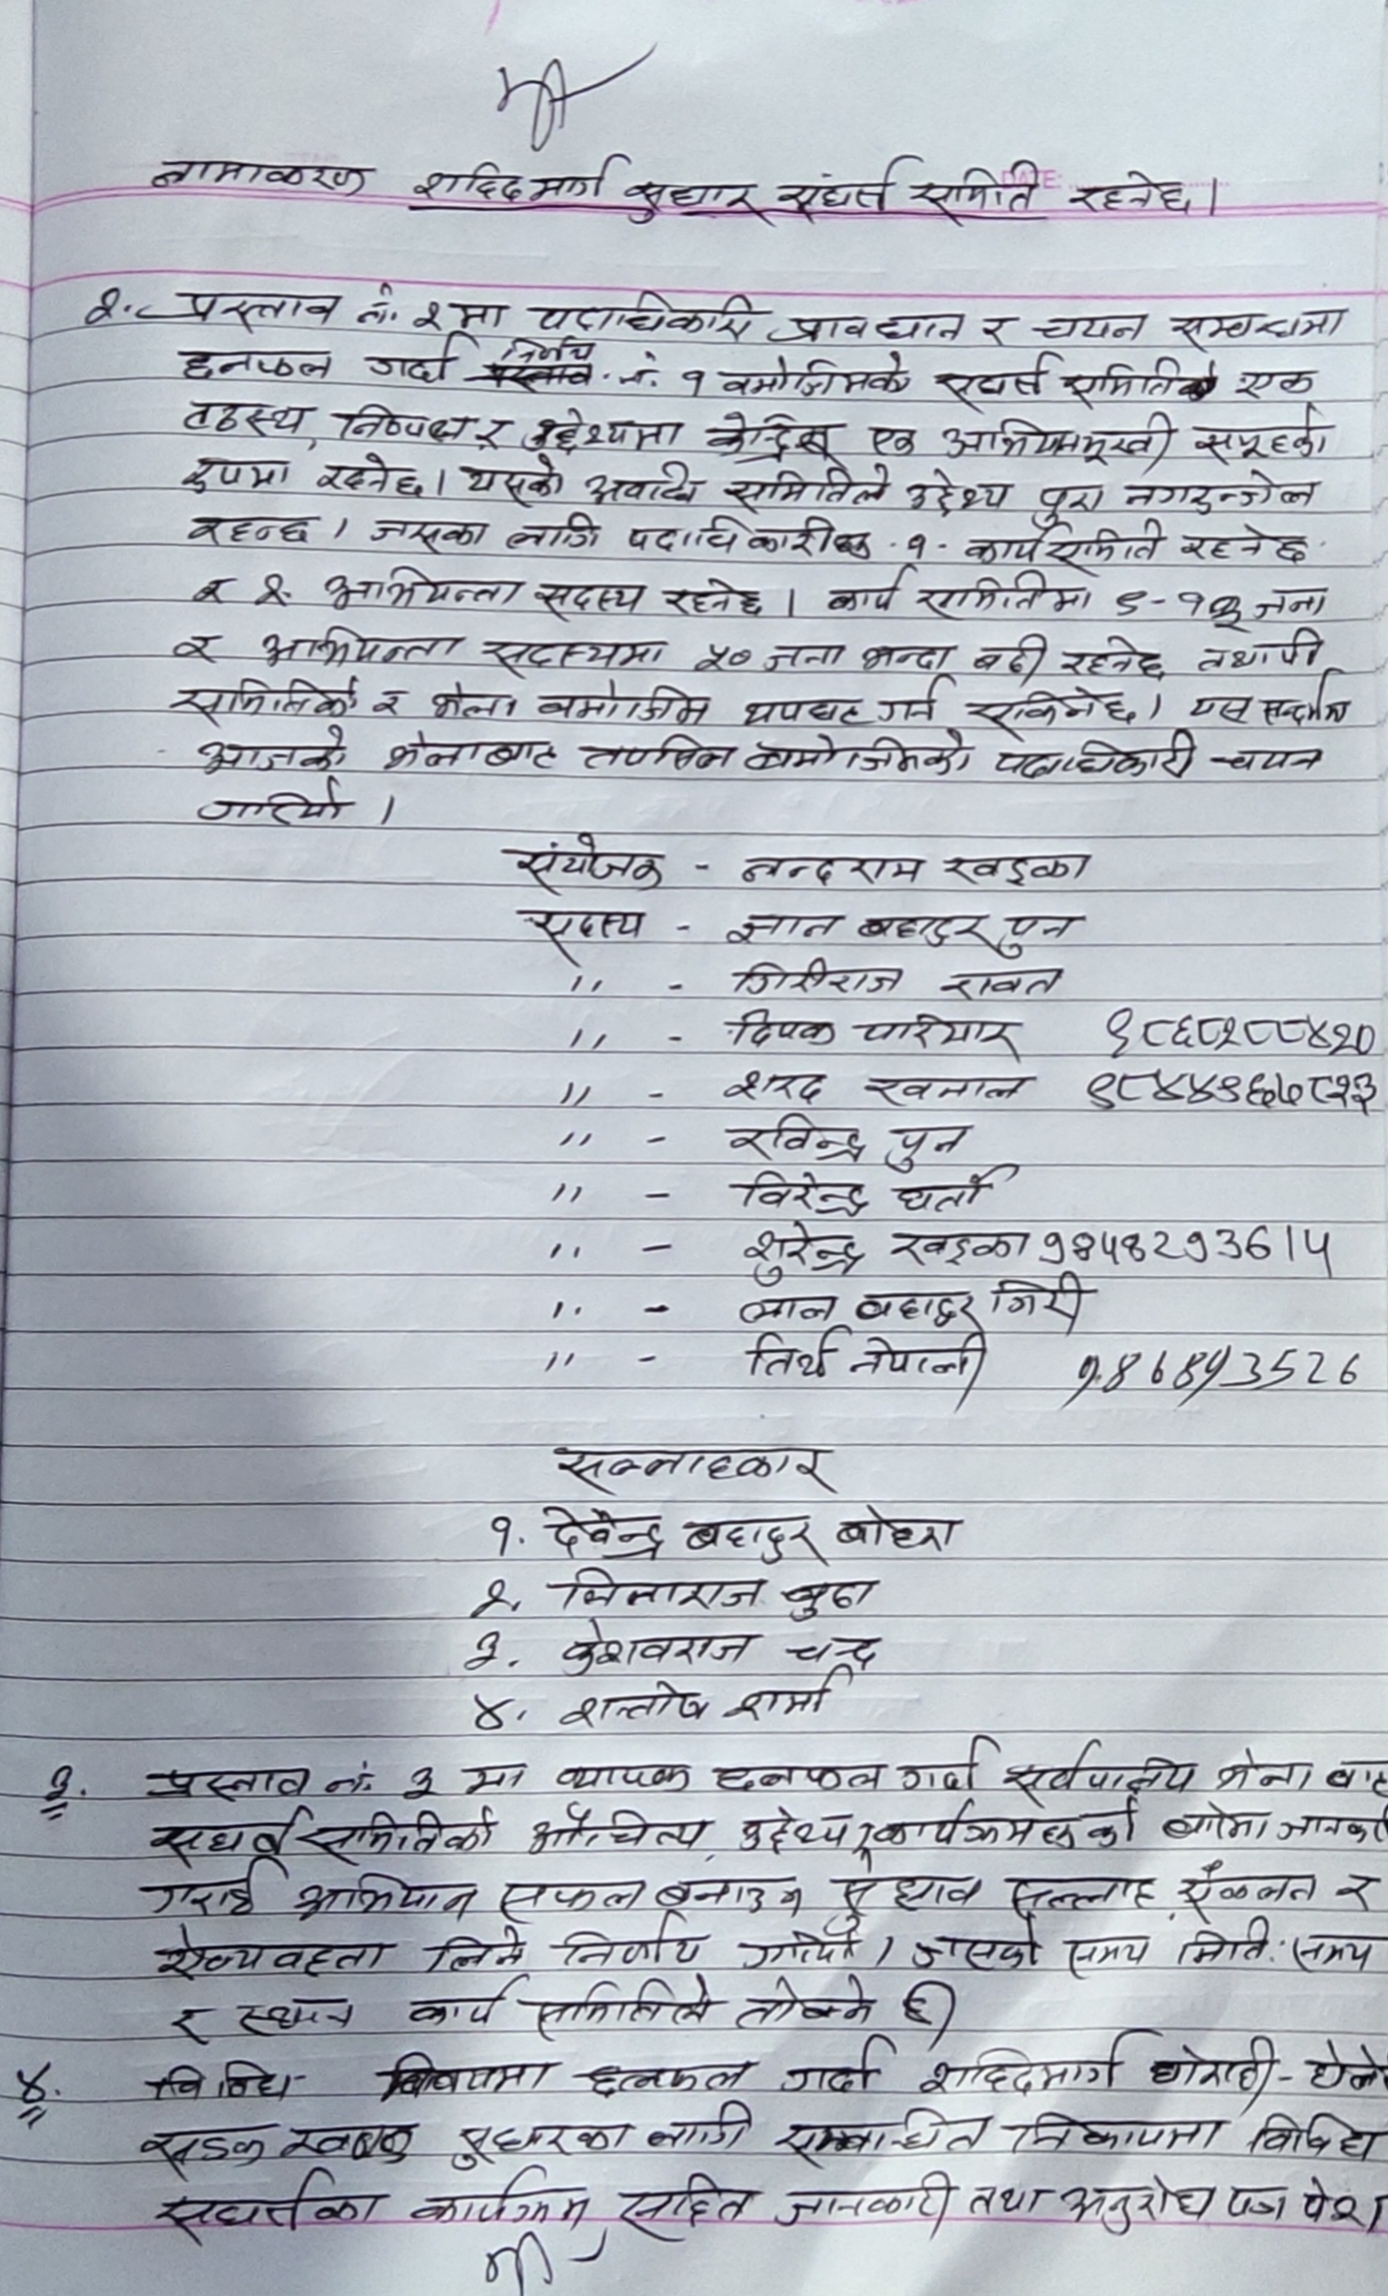 नामाकरण शहिदमार्ग सुधार संघर्स समिति रहनेछ।
२. प्रस्ताव नं. २ मा पदाधिकारी प्रावधान र चयन सम्बन्धमा
छलफल गर्दा निर्णय नं. १ बमोजिमको संघर्स समिति एक
तठस्थ, निष्पक्ष र उद्देश्यमा केन्द्रित एक अभियानमूखी समूहको
रुपमा रहनेछ। यसको अवधि समितिले उद्देश्य पुरा नगरुन्जेल
रहन्छ। जसका लागि पदाधिकारी १. कार्य समिति रहनेछ
र २. अभियन्ता सदस्य रहनेछ। कार्य समितिमा ९-१३ जना
र अभियन्ता सदस्यमा ५० जना भन्दा बढी रहनेछ तथापी
समितिको र भेला बमोजिम थपघट गर्न सकिनेछ। यस सन्दर्भमा
आजको भेलाबाट तपसिल बमोजिमको पदाधिकारी चयन
गरियो।
संयोजक - नन्दराम खड्का
सदस्य - ज्ञान बहादुर पुन
" - गिरीराज रावत
" - दिपक परियार ९८६८२८८४२०
" - शरद खनाल ९८४४९६७८२३
" - रविन्द्र पुन
" - विरेन्द्र घर्ती
" - शुरेन्द्र खड्का 9848293614
" - मान बहादुर गिरी
" - तिर्थ नेपाली 986893526
सल्लाहकार
१. देवेन्द्र बहादुर बोहरा
२. लिलाराज बुढा
३. केशवराज चन्द्र
४. शन्तोष शर्मा
३. प्रस्ताव नं. ३ मा व्यापक छलफल गर्दा सर्वपक्षीय भेला बाट
संघर्ष समितिको औचित्य, उद्देश्य र कार्यक्रमहरुको बारेमा जानकारी
गराई अभियान सफल बनाउन सुझाव सल्लाह, संकलन र
ऐक्यवद्दता लिने निर्णय गरियो। जसको समय मिति: समय
र स्थान कार्य समितिले तोक्ने छ।
४. विविध विषयमा छलफल गर्दा शहिदमार्ग घोराही-होलेरी
सडक खण्ड सुधारका लागी सम्बन्धित निकायमा विविध
संघर्सका कार्यक्रम सहित जानकारी तथा अनुरोध पत्र पेश